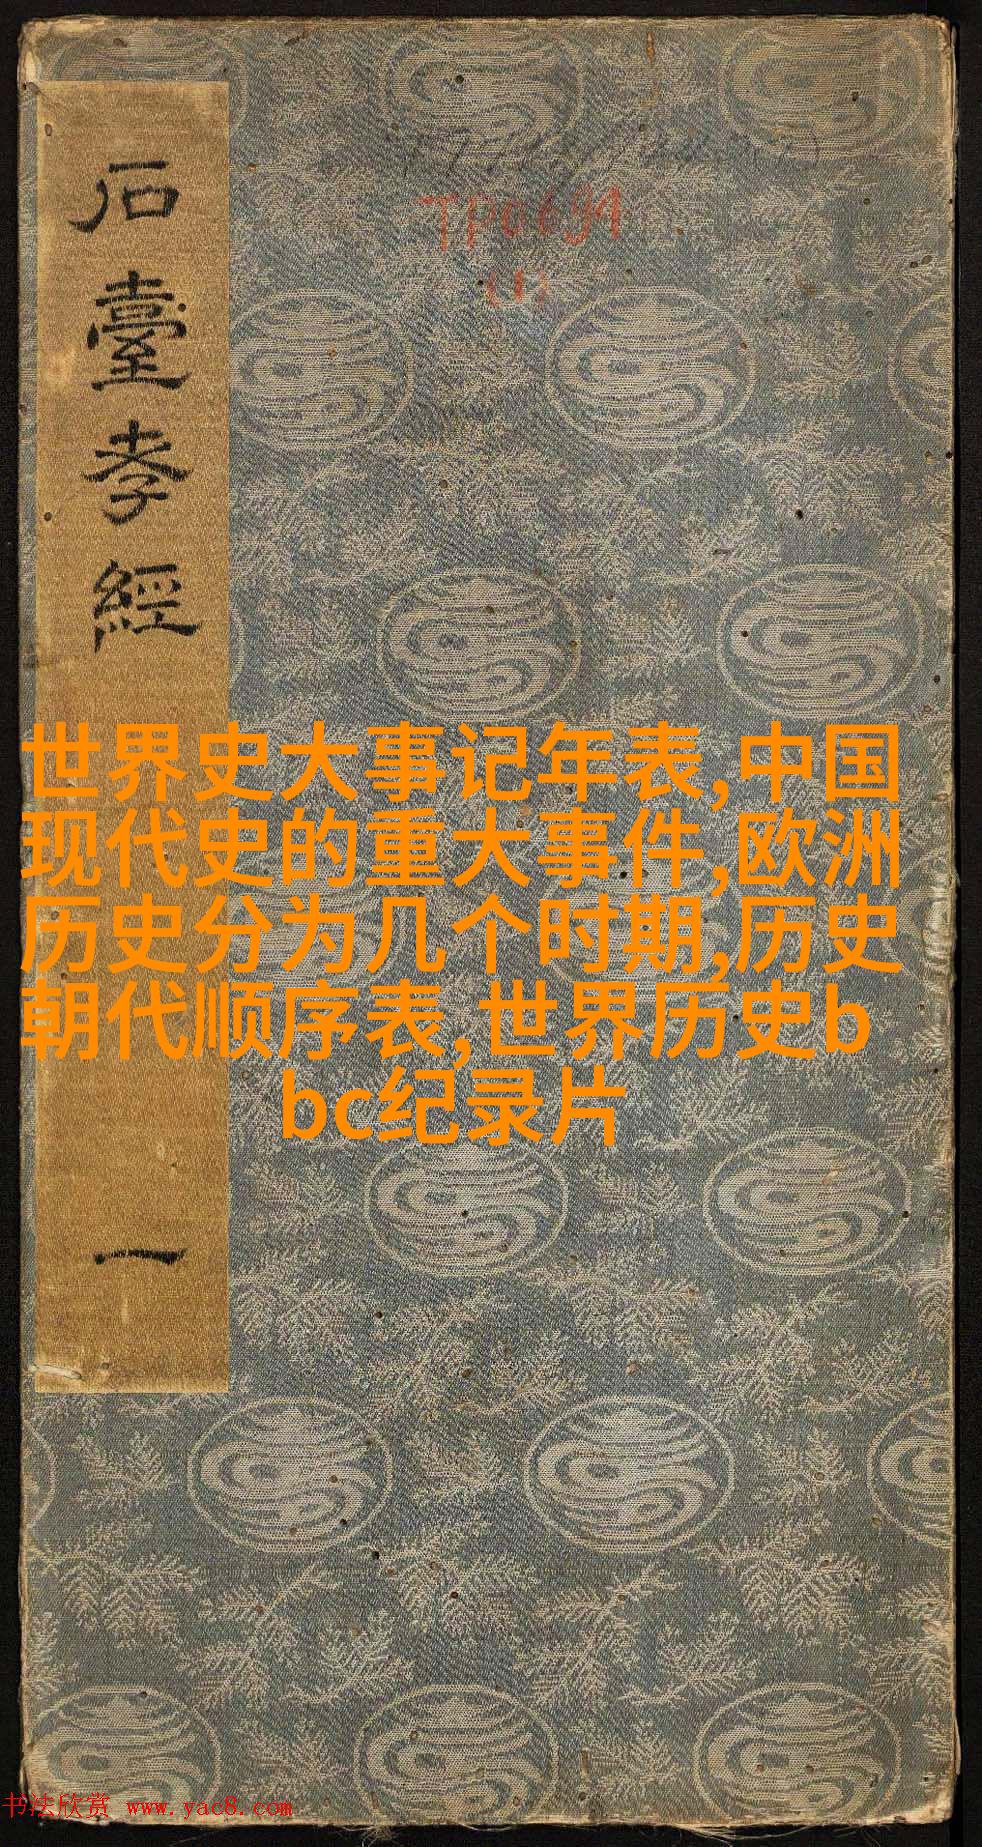 石臺孝經
一
TP0691
(1)
世界史大事记年表,中国
现代史的重大事件,欧洲
历史分为几个时期,历史
朝代顺序表,世界历史b
bc纪录片
书法欣赏 www.yac8.com